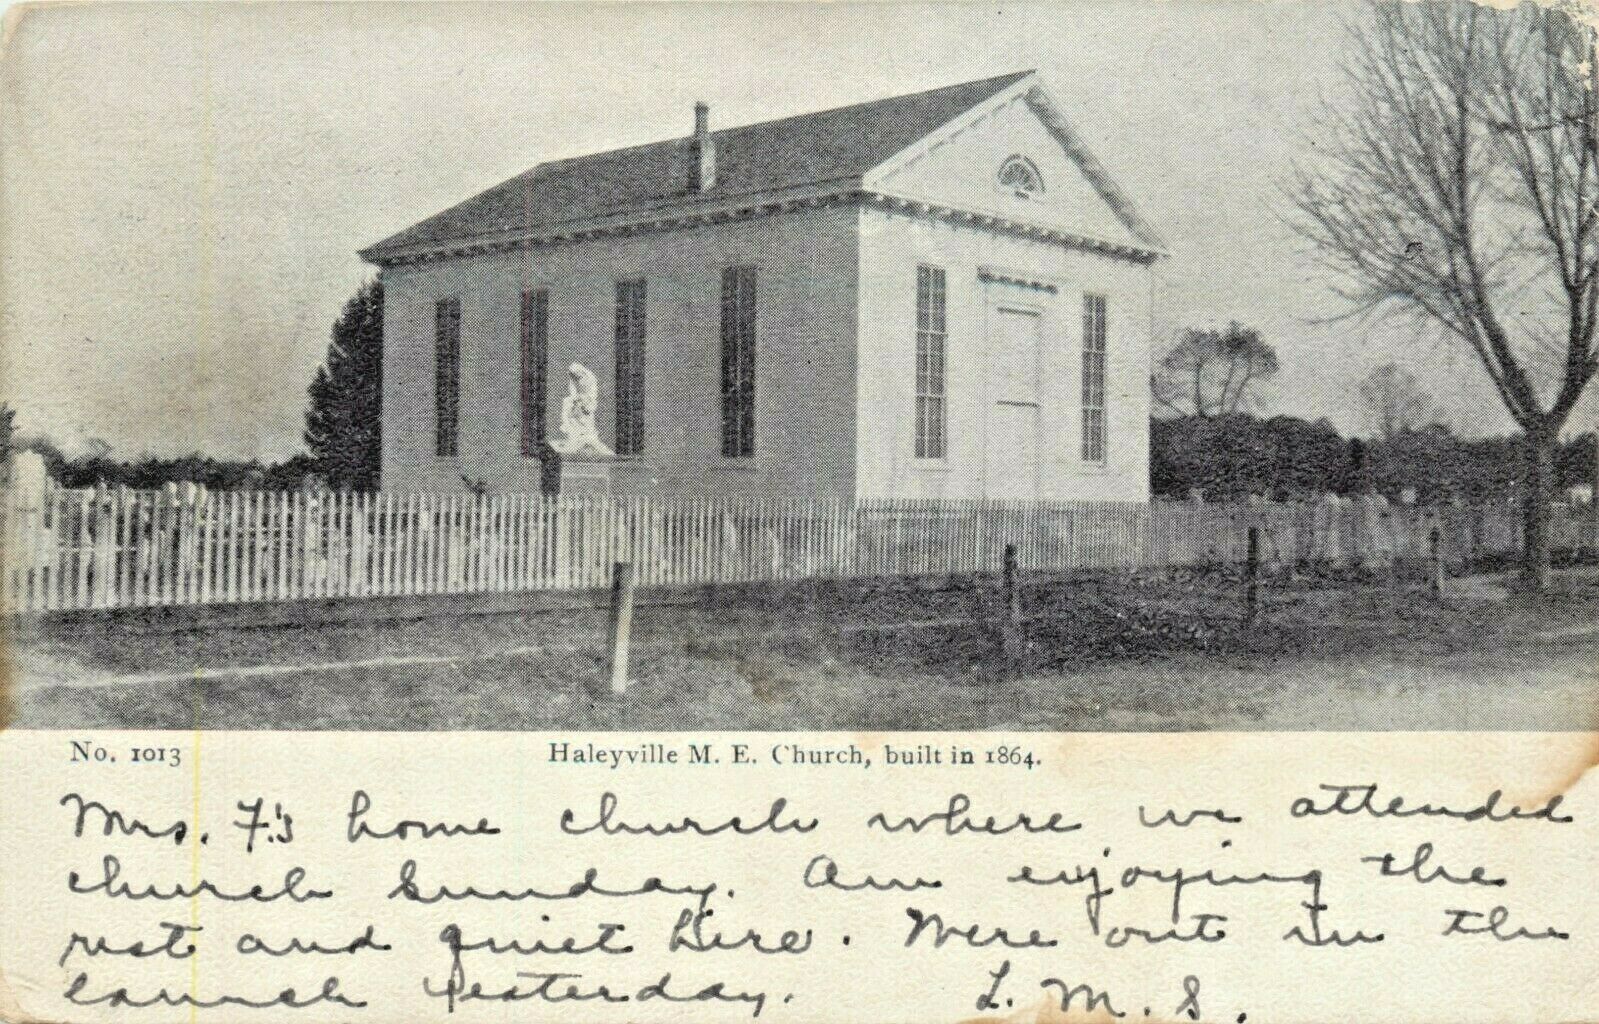 No. 1013 Haleyville M. E. Church, built in 1864.
Mrs. F.'s home church where we attended
church Sunday. Am enjoying the
rest and quiet here. Were out in the
launch yesterday. L. M. S.